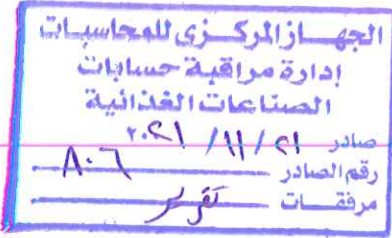 الجهاز المركزى للمحاسبات
إدارة مراقبة حسابات
الصناعات الغذائية
صادر ٢١ / ١١ / ٢٠٢١
رقم الصادر ٨٠٦
مرفقات تقرير